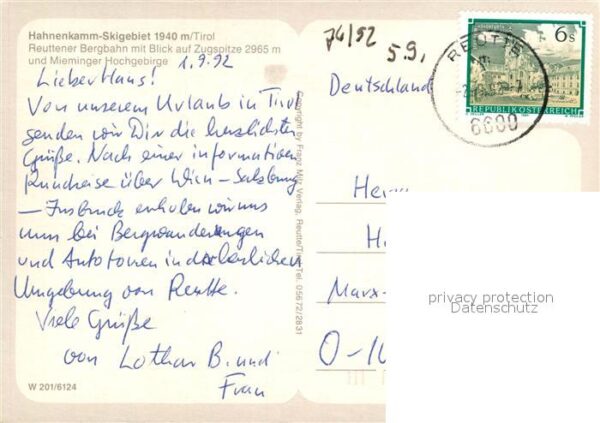 Hahnenkamm-Skigebiet 1940 m/Tirol
Reuttener Bergbahn mit Blick auf Zugspitze 2965 m
und Mieminger Hochgebirge
1.9.92
74/92
5.9.
Lieber Hans!
Von unserem Urlaub in Tirol
senden wir Dir die herzlichsten
Grüße. Nach einer informativen
Rundreise über Wien - Salzburg
- Insbruck erholen wir uns
nun bei Bergwanderungen
und Autotouren in der herrlichen
Umgebung von Reutte.
Viele Grüße
von Lothar B. und
Frau
W 201/6124
Copyright by Franz Milz Verlag, Reutte/Tirol Tel. 05672/2831
6 s
REPUBLIK ÖSTERREICH
REUTTE
6600
Deutschland
Herrn
H
Marx-
O-10
privacy protection
Datenschutz